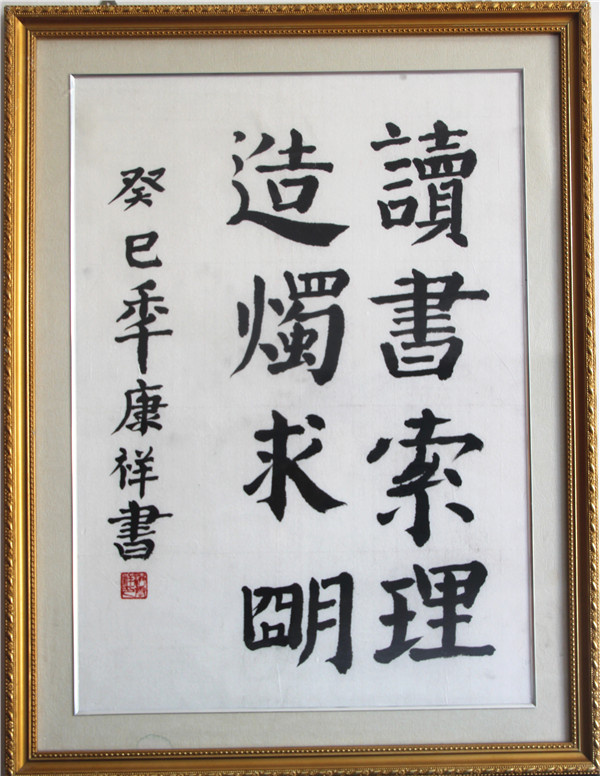 讀書索理
造燭求明
癸巳年康祥書